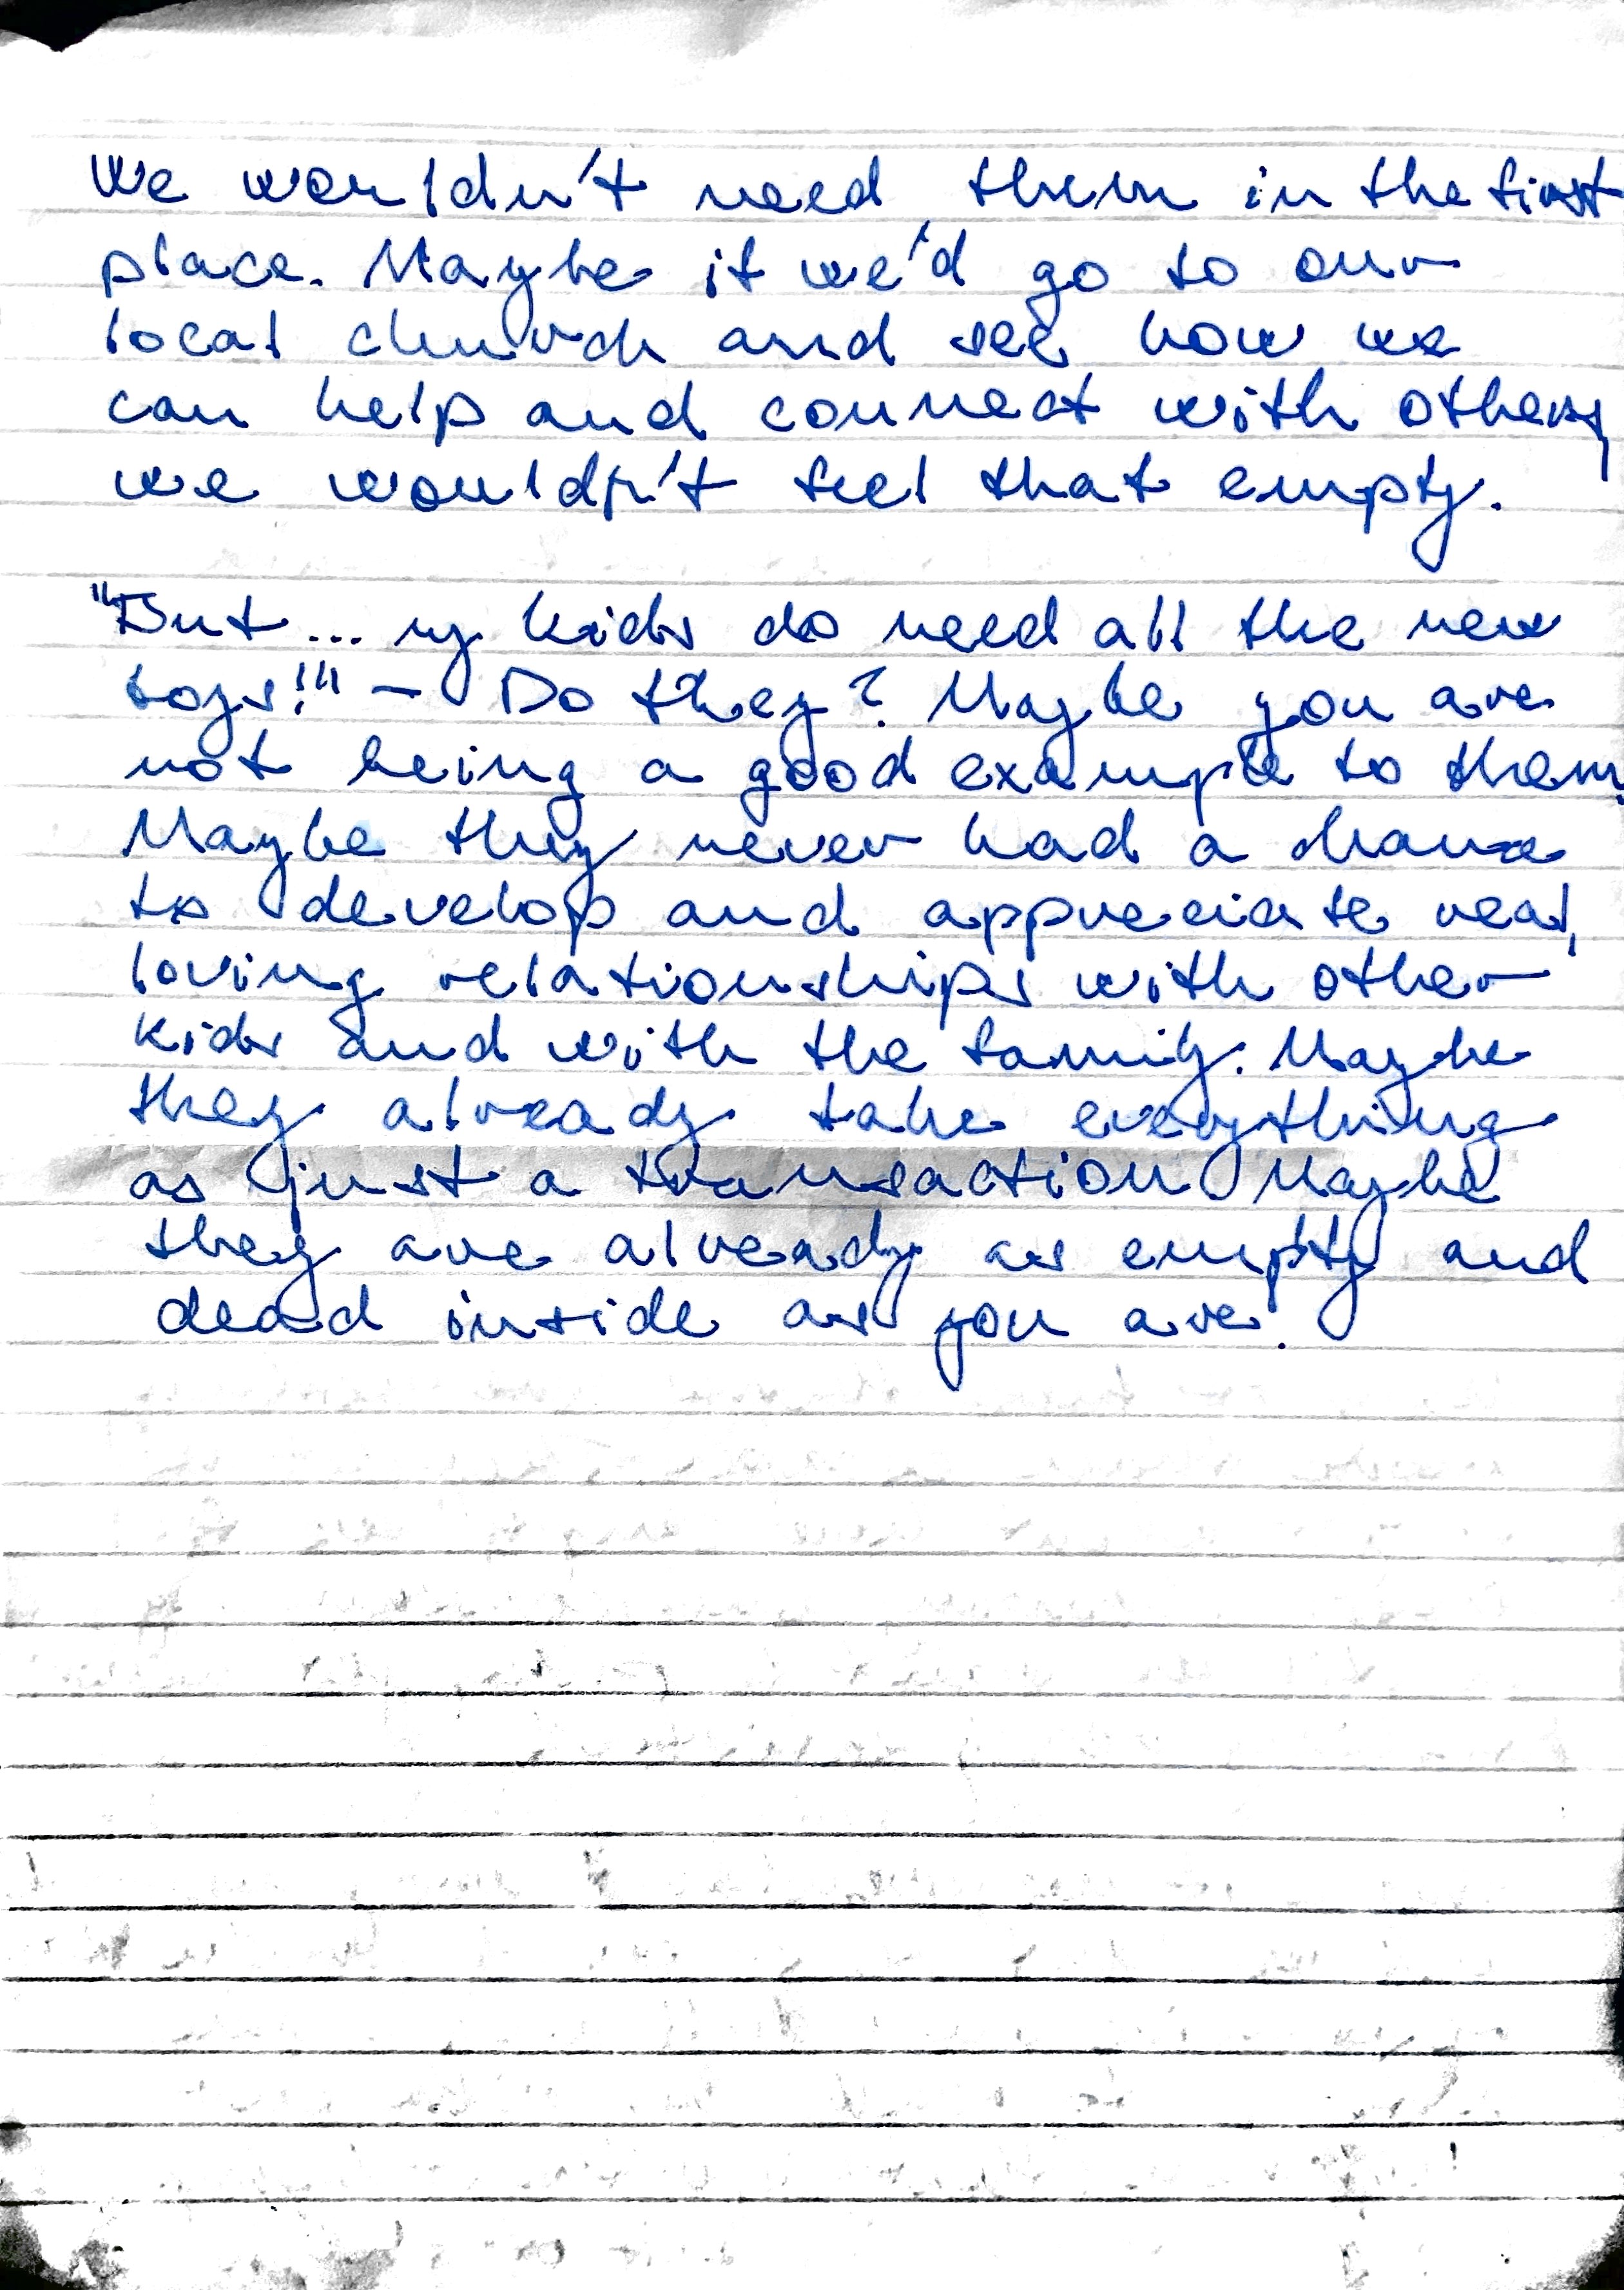 We wouldn't need them in the first
place. Maybe if we'd go to our
local church and see how we
can help and connect with others,
we wouldn't feel that empty.
"But... my kids do need all the new
toys!!!" - Do they? Maybe you are
not being a good example to them.
Maybe they never had a chance
to develop and appreciate real,
loving relationships with other
kids and with the family. Maybe
they already take everything
as just a transaction. Maybe
they are already as empty and
dead inside as you are.